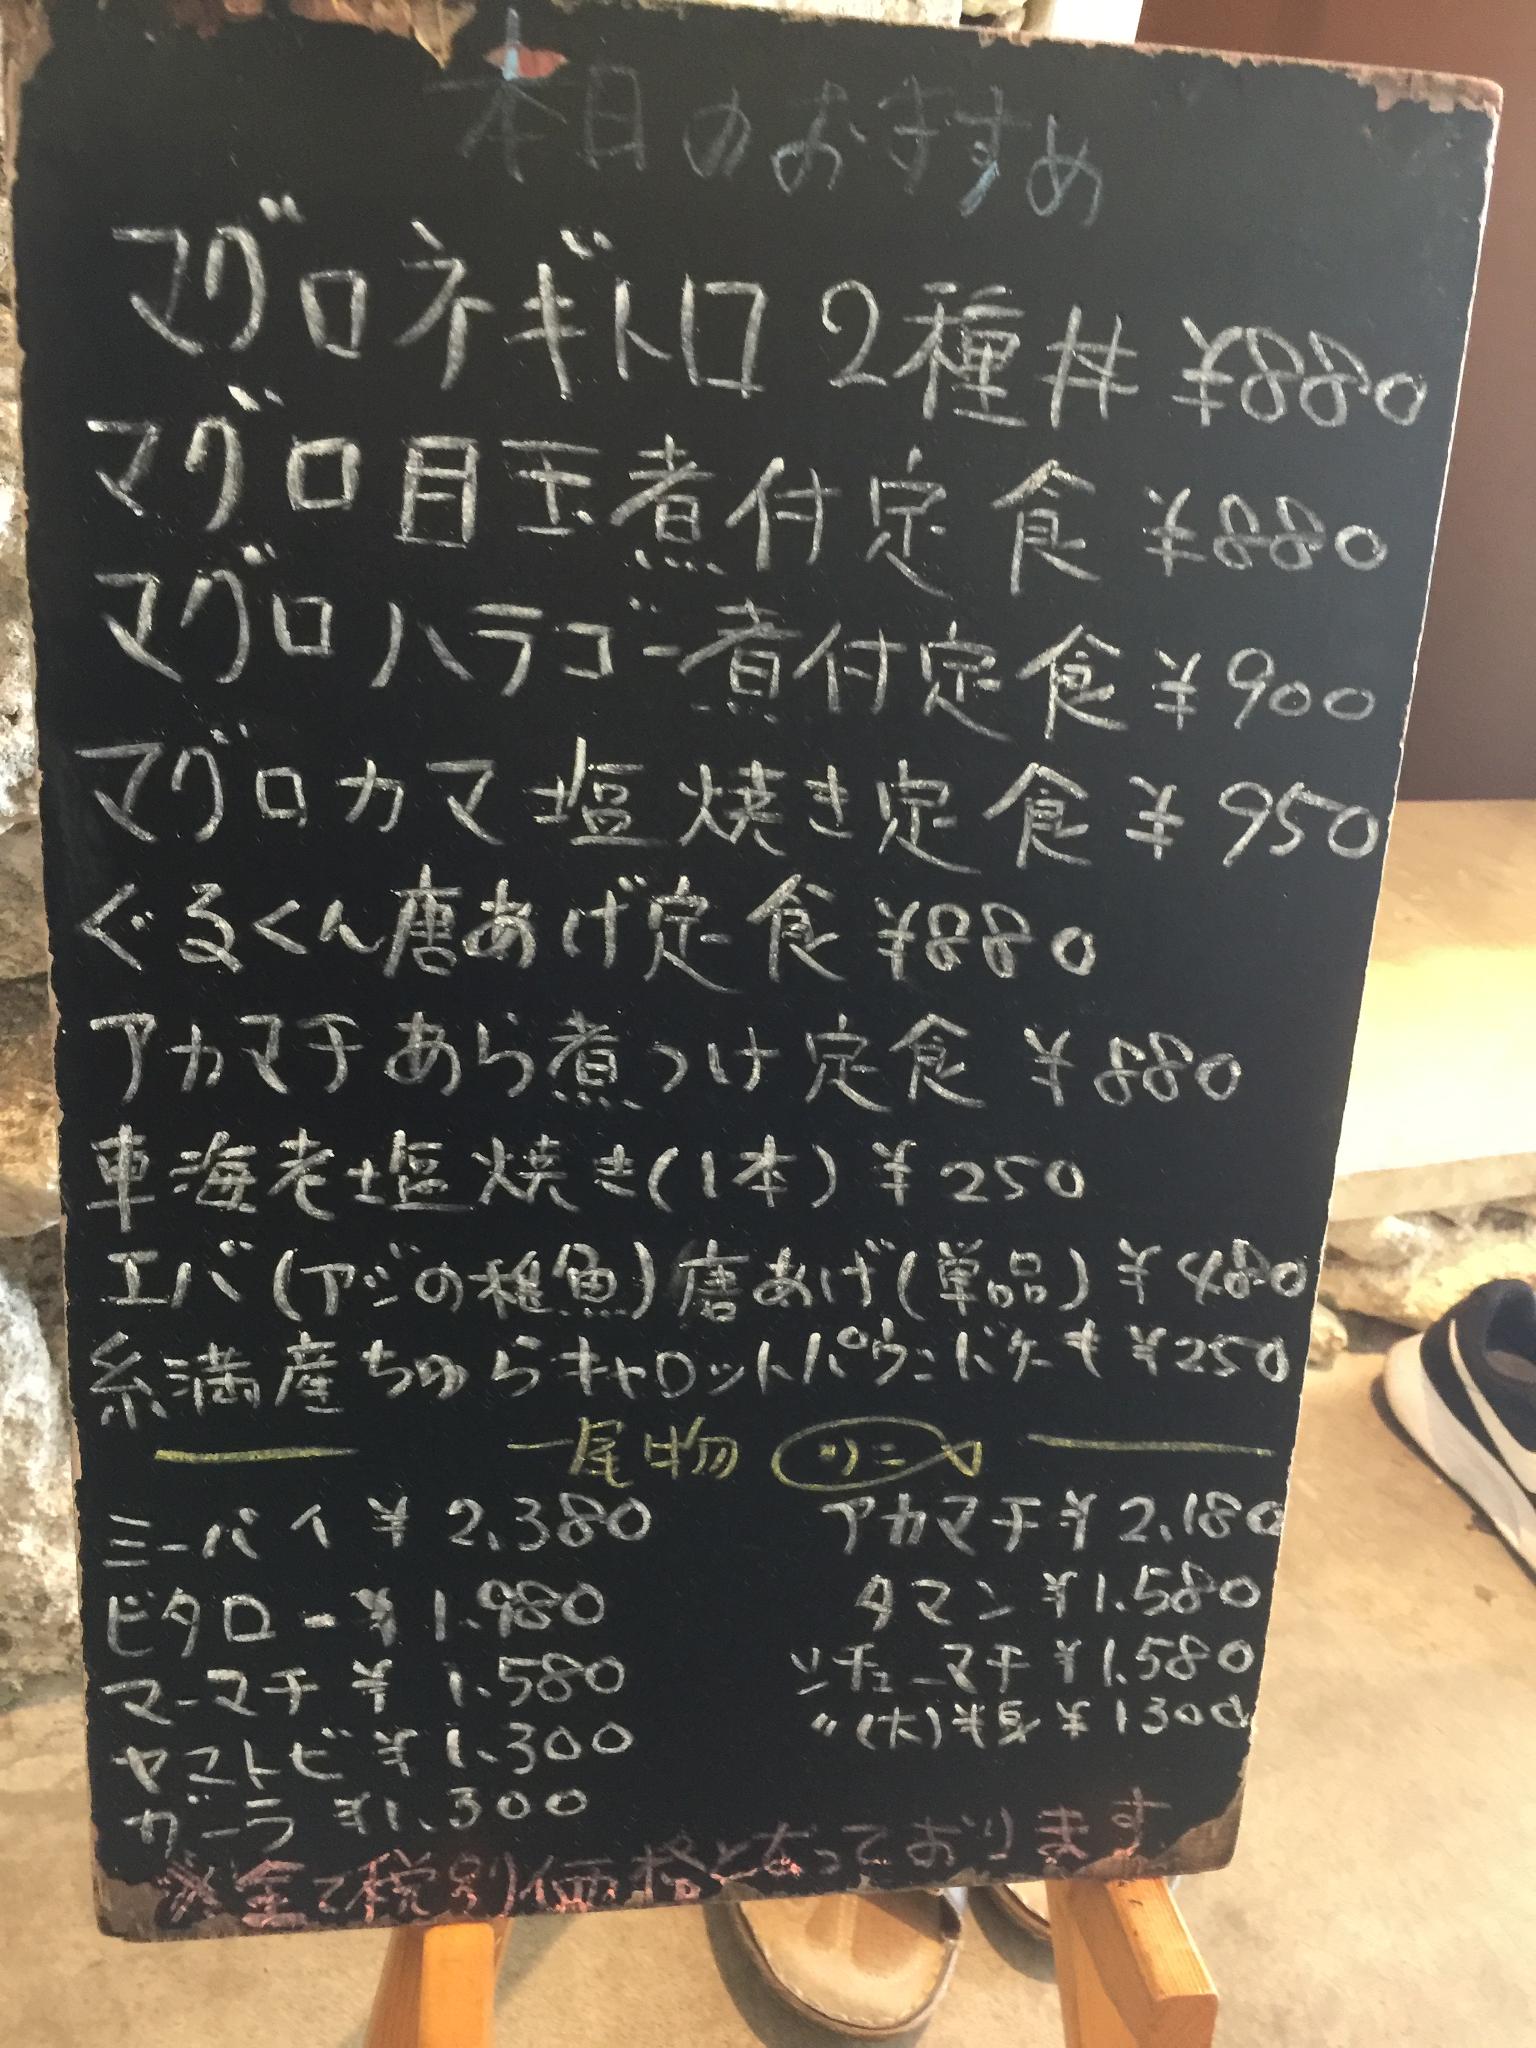 本日のおすすめ
マグロネギトロ2種丼 ¥880
マグロ目玉煮付定食 ¥880
マグロハラゴー煮付定食 ¥900
マグロカマ塩焼き定食 ¥950
ぐるくん唐あげ定食 ¥880
アカマチあら煮つけ定食 ¥880
車海老塩焼き(1本) ¥250
エバ(アジの稚魚)唐あげ(単品) ¥480
糸満産ちゅらキャロットパウンドケーキ ¥250
一尾物
ミーバイ ¥2,380
ビタロー ¥1,980
マーマチ ¥1,580
ヤマトビ ¥1,300
ガーラ ¥1,300
アカマチ ¥2,180
タマン ¥1,580
シチューマチ ¥1,580
〃(大)半身 ¥1300
※全て税別価格となっております